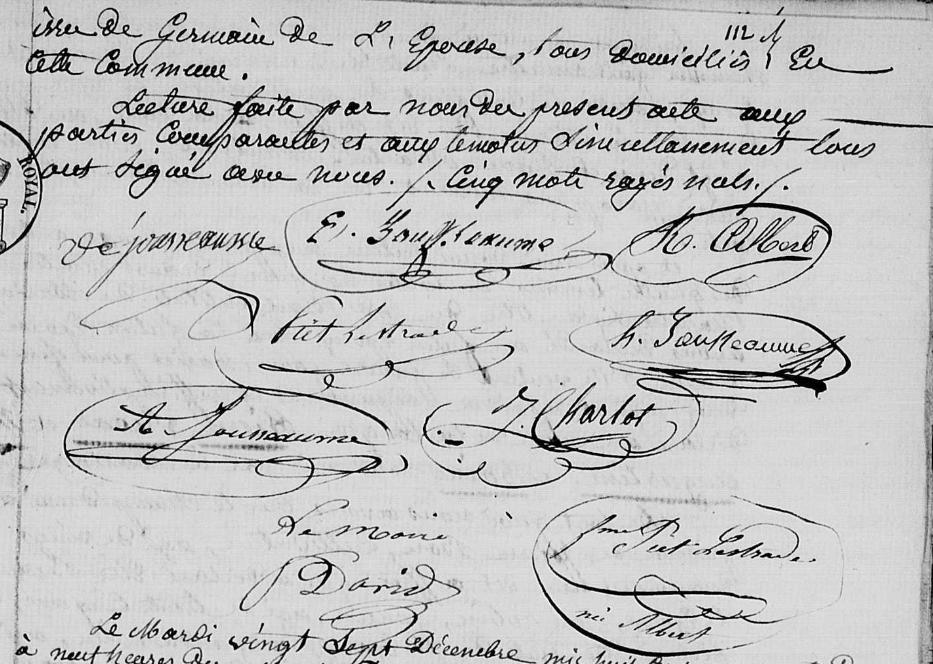 issu de Germain de L'Epouse, tous domiciliés En
Cette Commune.
Lecture faite par nous du present acte aux
parties Comparantes et aux temoins Simultanement tous
ont Signé avec nous. /. Cinq mots rayés nuls. /.
ROYAL
Vve Jousseausme
E. Jousseaume
H. Albert
Piet Lestrade
h. Jousseaume
A Jousseaume
J. Charlot
Le Maire
David
fme Piet Lestrade
née Albert
Le Mardi vingt Sept Décembre mil huit
à neuf heures du